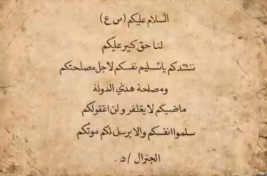 السلام عليكم (س ع)
لنا حق كبير عليكم
ننشدكم يا تسليم نفسكم لاجل مصلحتكم
ومصلحة هذي الدولة
ماضيكم لا يغتفر ولن اعقولكم
سلموا انفسكم والا برسل لكم موتكم
الجنرال /د.